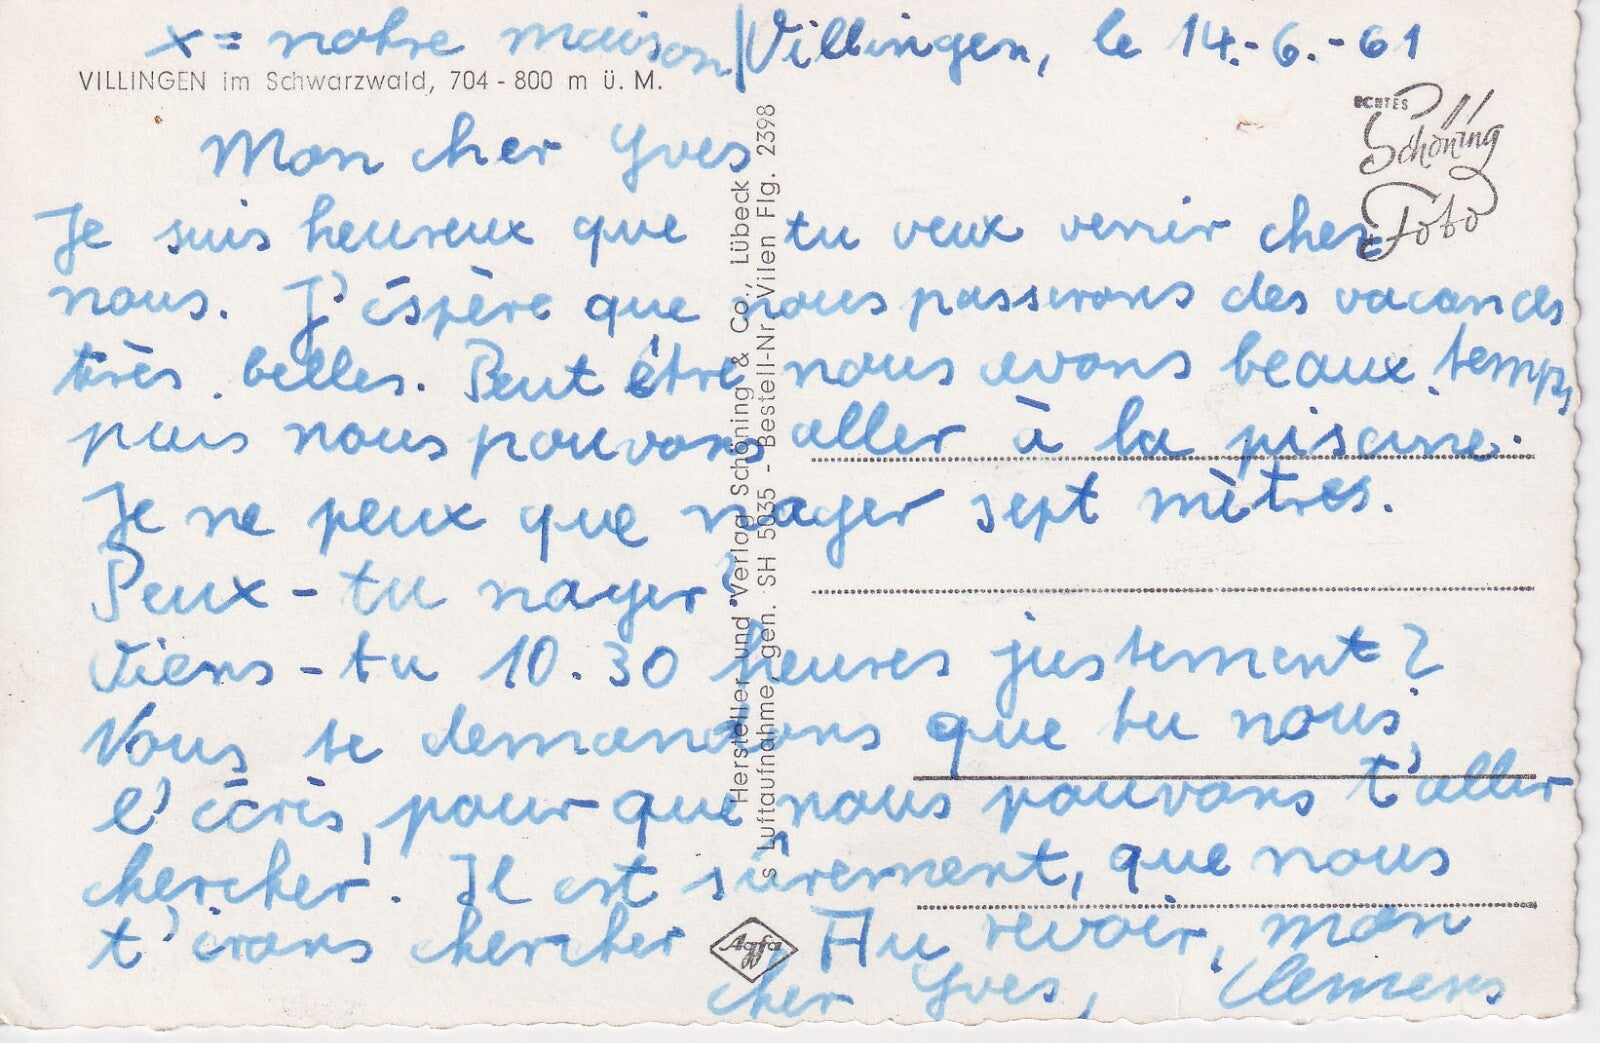 x = notre maison/Villingen, le 14.-6.-61
VILLINGEN im Schwarzwald, 704 - 800 m ü. M.
ECHTES
Schöning
Foto
Mon cher Yves
Je suis heureux que tu veux venir chez
nous. J'éspère que nous passerons des vacances
très belles. Peut être nous avons beaux temps,
puis nous pouvons aller à la piscine.
Je ne peux que nager sept mètres.
Peux-tu nager?
Viens-tu 10.30 heures justement?
Nous te demandons que tu nous
l'écris, pour que nous pouvons t'aller
chercher. Il est sûrement, que nous
t'irons chercher. Au revoir, mon
cher Yves, Clemens
Agfa
Hersteller und Verlag Schöning & Co., Lübeck
s Luftaufnahme, gen. SH 5035 - Bestell-Nr. Vilen Flg. 2398